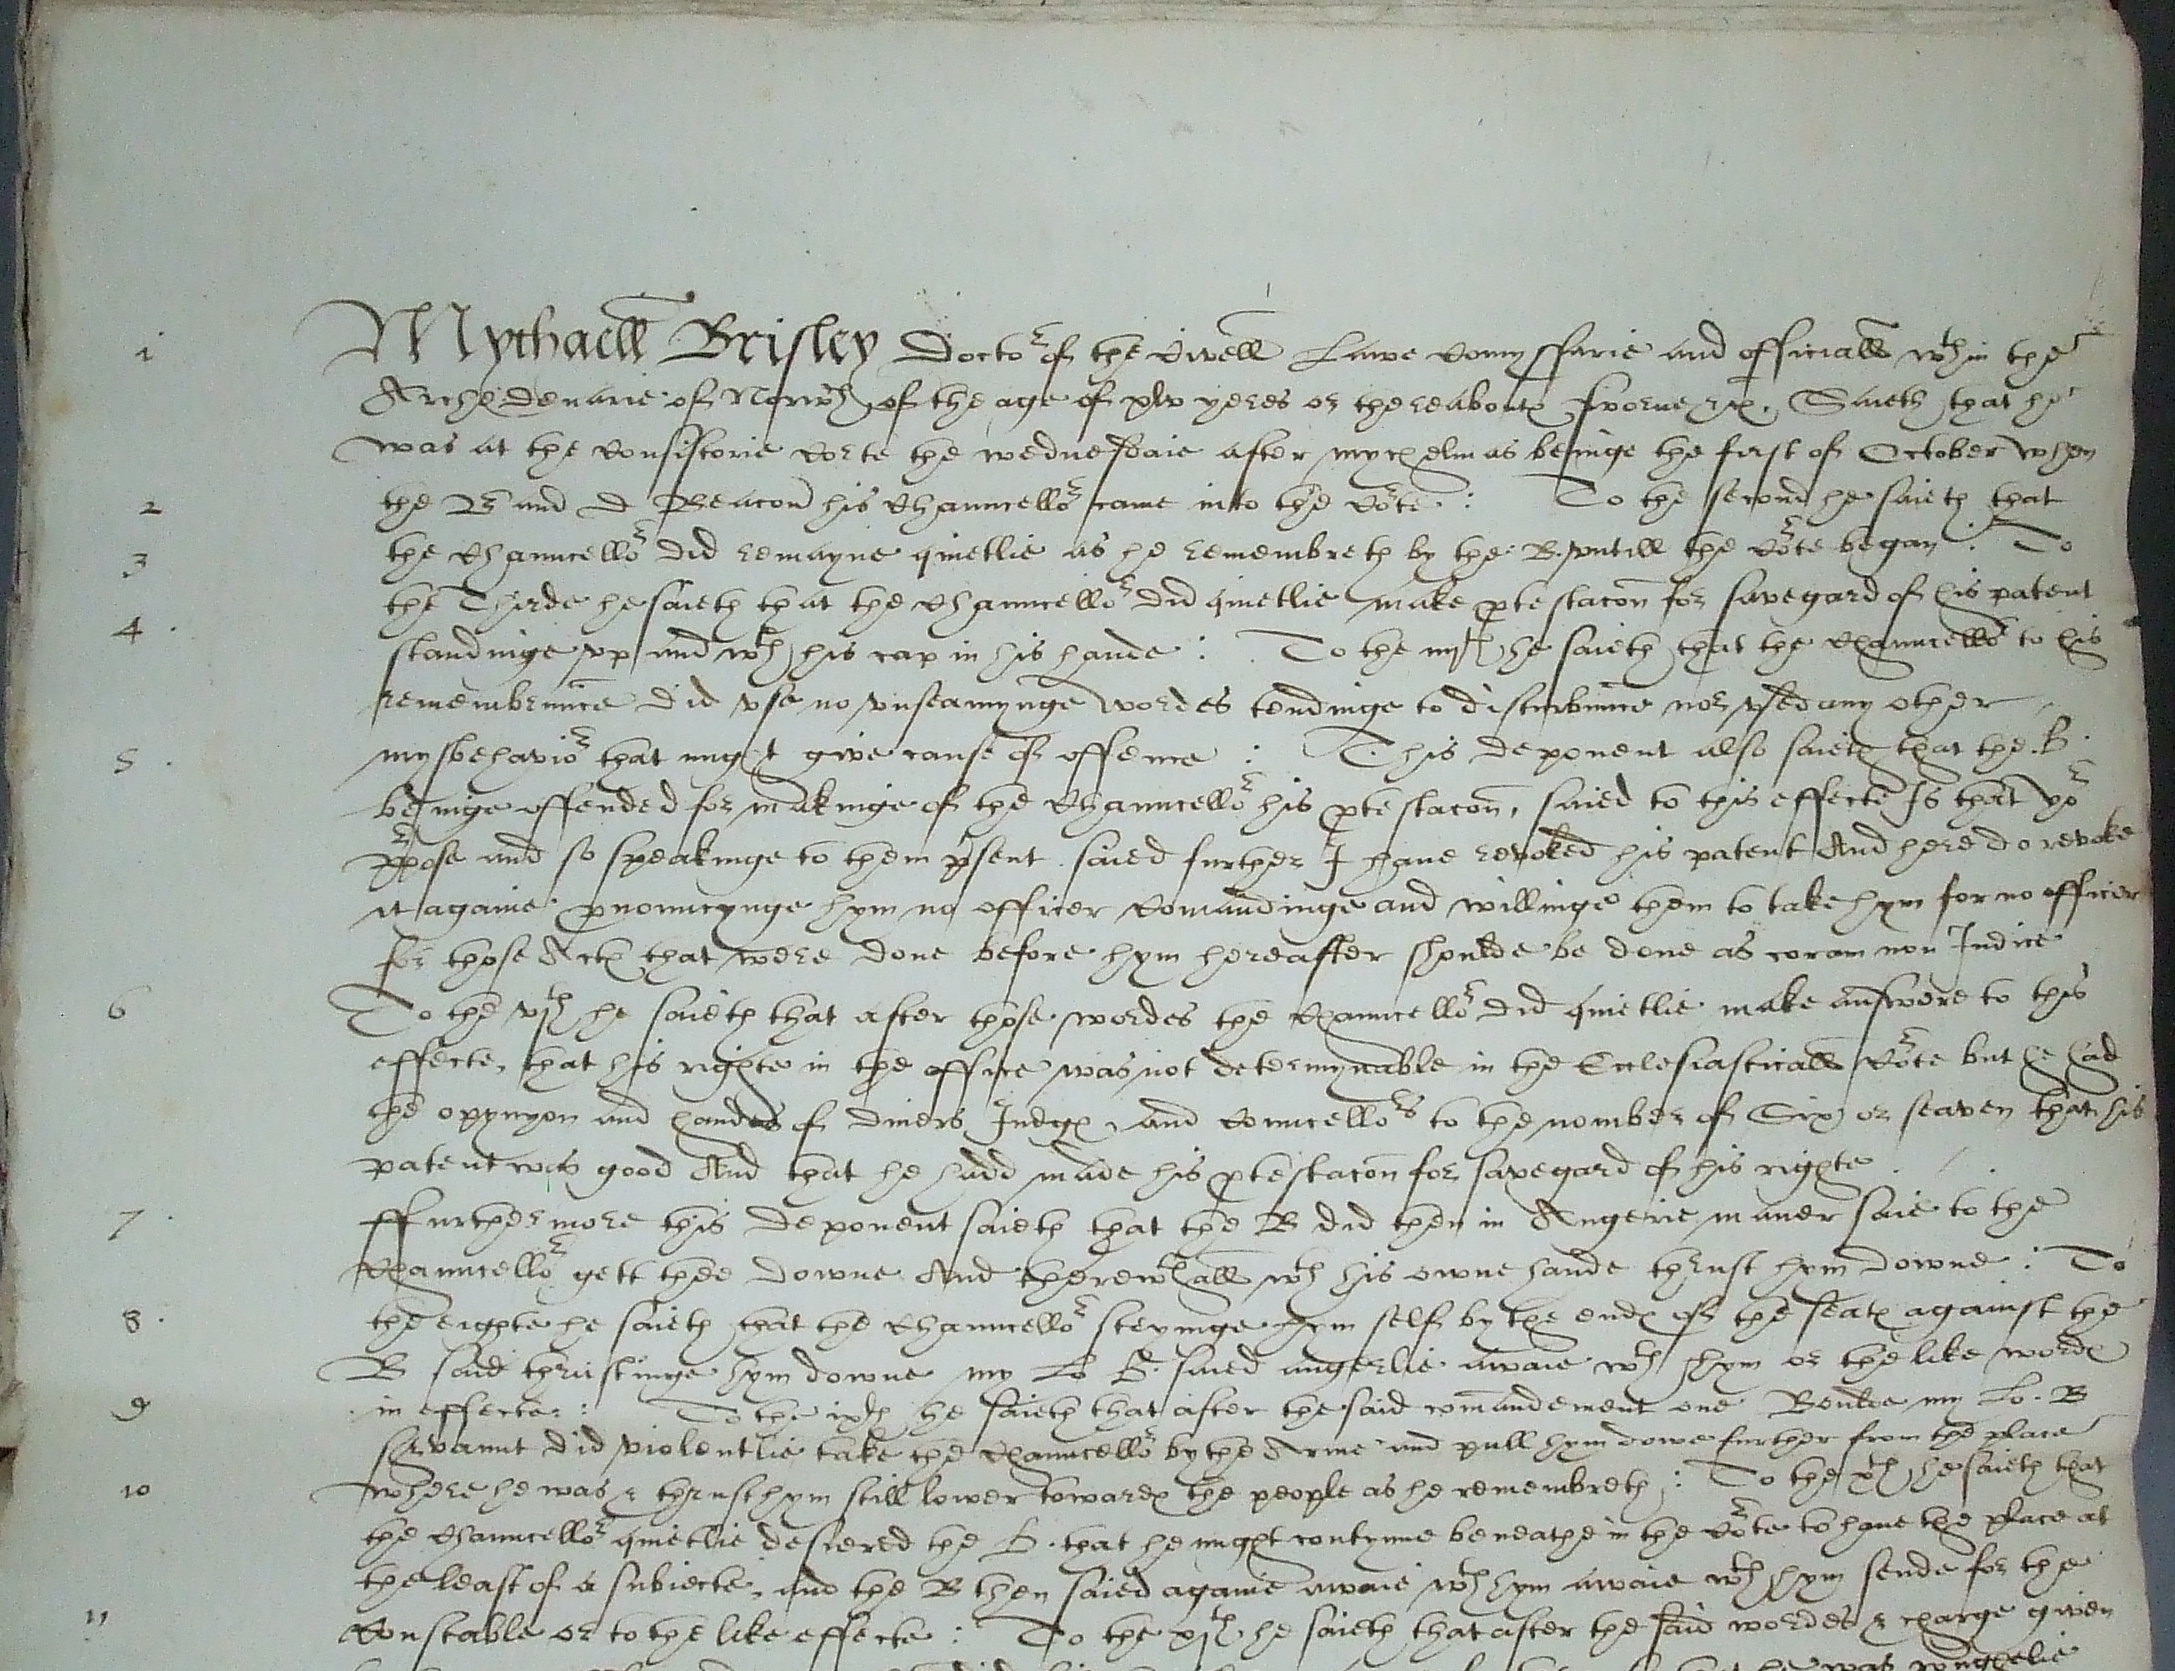 1 Mychaell Brisley Docto:r of the Civell Lawe Comyssarie and officiall wthin the
Archedenarie of Norwch of the age of xlv yeres or thereaboutes sworne &c. Saieth that he
was at the Consistorie Corte the wednesdaie after mychelmas beinge the first of October when
2 the B and D Beacon his Chauncellor came into the Corte : To the second he saieth that
3 the Chauncellor did remayne quietlie as he remembreth by the B. untill the Corte began : To
the Thirde he saieth that the Chauncellor did quietlie make ptestacon for savegard of his patent
4 standinge vp and wth his cap in his hande : To the iiijth he saieth that the Chauncellor to his
remembraunce did vse no vnseamynge wordes tendinge to disturbance nor vsed any other
5 mysbehavior that might give cause of offence : This deponent also saieth that the .B.
beinge offended for makinge of the Chauncellor his ptestacon, saied to this effecte Is that yor
ppose and so speakinge to them psent saied further I have revoked his patent And here do revoke
it againe pnouncynge hym no officer Comaundinge and willinge them to take hym for no officer
for those Actes that were done before hym hereafter shoulde be done as coram non Judice
6 To the vjth he saieth that after those wordes the Chauncellor did quietlie make answere to this
effecte, that his righte in the office was not determynable in the Ecclesiasticall Corte but he had
the opynyon and handes of divers Judges and Councellors to the nomber of Six or seaven that his
patent was good And that he hadd made his ptestacon for savegard of his righte .
7 ffurthermore this deponent saieth that the B did then in Angerie maner saie to the
Chauncellor gett thee downe And therewthall wth his owne hande thrust hym downe : To
8 the eighte he saieth that the Chauncellor steyinge hym self by the endes of the seates against the
B said thrustinge hym downe my Lo B. saied angerlie awaie wth hym or the like wordes
9 in effecte : To the ixth he saieth that after the said comandement one Boulde my Lo. B
servaunt did violentlie take the Chauncellor by the Arme and pull hym dowe further from the place
10 where he was & thrust hym still lower towardes the people as he remembreth : To the xth he saieth that
the Chauncellor quietlie desiered the B. that he might contynue beneathe in the Corte to have the place at
the least of a subiecte, and the B then saied againe awaie wth hym awaie wth hym sende for the
11 Constable or to the like effecte : To the xjth he saieth that after the said wordes & charge given
he was